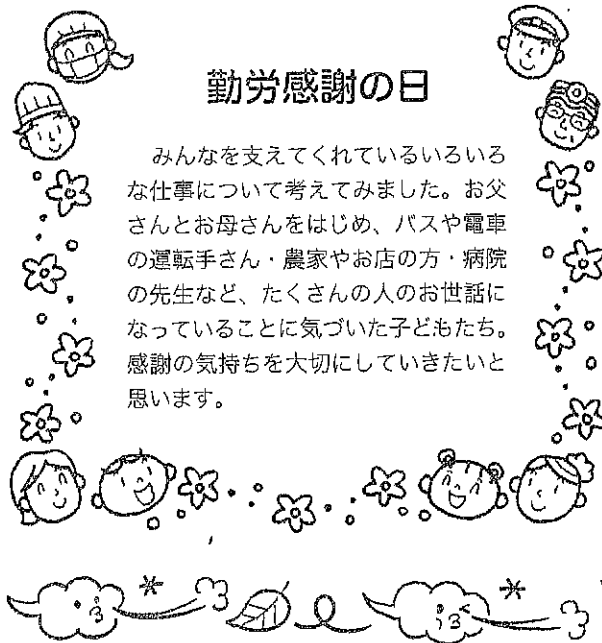 勤労感謝の日
みんなを支えてくれているいろいろ
な仕事について考えてみました。お父
さんとお母さんをはじめ、バスや電車
の運転手さん・農家やお店の方・病院
の先生など、たくさんの人のお世話に
なっていることに気づいた子どもたち。
感謝の気持ちを大切にしていきたいと
思います。